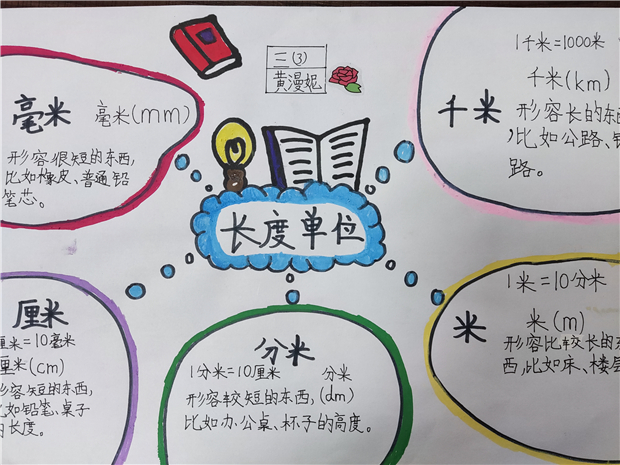 三(3)
黄漫妮
长度单位
毫米 毫米(mm)
形容很短的东西,
比如橡皮、普通铅
笔芯。
1千米=1000米
千米(km)
千米 形容长的东
,比如公路、
路。
厘米
厘米=10毫米
厘米(cm)
形容短的东西,
比如铅笔、桌子
的长度。
分米
1分米=10厘米 分米
形容较短的东西,(dm)
比如办公桌、杯子的高度。
1米=10分米
米 米(m)
形容比较长的东
西,比如床、楼层